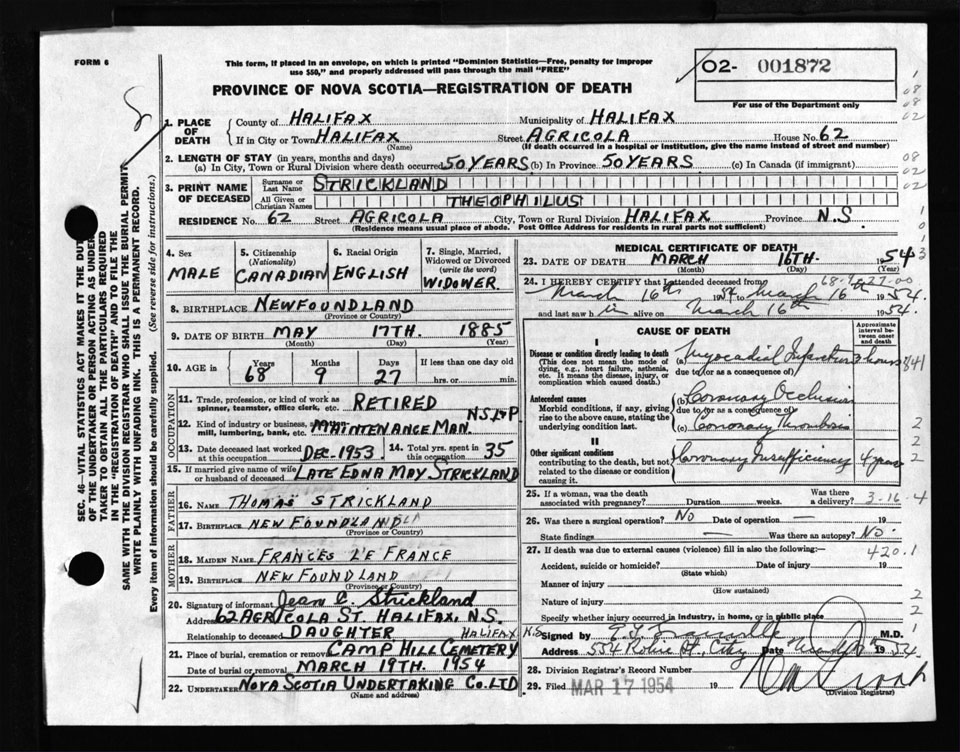 FORM 6
This form, if placed in an envelope, on which is printed "Dominion Statistics—Free, penalty for improper
use $50," and properly addressed will pass through the mail "FREE"
PROVINCE OF NOVA SCOTIA—REGISTRATION OF DEATH
02- 001872
For use of the Department only
SEC. 46—VITAL STATISTICS ACT MAKES IT THE DUTY
OF THE UNDERTAKER OR PERSON ACTING AS UNDER-
TAKER TO OBTAIN ALL THE PARTICULARS REQUIRED
IN THE "REGISTRATION OF DEATH" AND TO FILE THE
SAME WITH THE DIVISION REGISTRAR WHO SHALL ISSUE THE BURIAL PERMIT
WRITE PLAINLY WITH UNFADING INK. THIS IS A PERMANENT RECORD.
Every item of information should be carefully supplied. (See reverse side for instructions.)
1. PLACE OF DEATH
County of HALIFAX Municipality of HALIFAX
If in City or Town HALIFAX Street AGRICOLA House No. 62
(Name) (If death occurred in a hospital or institution, give the name instead of street and number)
2. LENGTH OF STAY (in years, months and days)
(a) In City, Town or Rural Division where death occurred 50 YEARS (b) In Province 50 YEARS (c) In Canada (if immigrant)
3. PRINT NAME OF DECEASED
Surname or Last Name STRICKLAND
All Given or Christian Names THEOPHILUS
RESIDENCE No. 62 Street AGRICOLA City, Town or Rural Division HALIFAX Province N.S
(Residence means usual place of abode. Post Office Address for residents in rural parts not sufficient)
4. Sex MALE
5. Citizenship (Nationality) CANADIAN
6. Racial Origin ENGLISH
7. Single, Married, Widowed or Divorced (write the word) WIDOWER
8. BIRTHPLACE NEWFOUNDLAND
(Province or Country)
9. DATE OF BIRTH MAY 17TH. 1885
(Month) (Day) (Year)
10. AGE in Years 68 Months 9 Days 27 If less than one day old
hrs. or min.
OCCUPATION
11. Trade, profession, or kind of work as spinner, teamster, office clerk, etc. RETIRED
12. Kind of industry or business, as cotton-mill, lumbering, bank, etc. MAINTENANCE MAN. N.S.L&P
13. Date deceased last worked at this occupation DEC. 1953
14. Total yrs. spent in this occupation 35
15. If married give name of wife or husband of deceased LATE EDNA MAY STRICKLAND
FATHER
16. NAME THOMAS STRICKLAND
17. BIRTHPLACE NEWFOUNDLAND
(Province or Country)
MOTHER
18. MAIDEN NAME FRANCES LE FRANCE
19. BIRTHPLACE NEWFOUNDLAND
(Province or Country)
20. Signature of informant Jean E. Strickland
Address 62 AGRICOLA ST. HALIFAX, N.S.
Relationship to deceased DAUGHTER
21. Place of burial, cremation or removal CAMP HILL CEMETERY HALIFAX
Date of burial or removal MARCH 19TH. 1954
22. UNDERTAKER NOVA SCOTIA UNDERTAKING CO. LTD
(Name and address)
MEDICAL CERTIFICATE OF DEATH
23. DATE OF DEATH MARCH 16TH. 1954
(Month) (Day) (Year)
24. I HEREBY CERTIFY that I attended deceased from
March 16th 1954 to March 16th 1954.
and last saw h im alive on March 16th 1954.
CAUSE OF DEATH
Approximate interval between onset and death
I
Disease or condition directly leading to death
(This does not mean the mode of dying, e.g., heart failure, asthenia, etc. It means the disease, injury, or complication which caused death.)
(a) Myocardial Infarction 3 hours
due to (or as a consequence of)
Antecedent causes
Morbid conditions, if any, giving rise to the above cause, stating the underlying condition last.
(b) Coronary Occlusion
due to (or as a consequence of)
(c) Coronary Thrombosis
II
Other significant conditions
contributing to the death, but not related to the disease or condition causing it.
Coronary Insufficiency 4 years
25. If a woman, was the death associated with pregnancy? Duration weeks. Was there a delivery? 3-16-4
26. Was there a surgical operation? No Date of operation — 19
State findings — Was there an autopsy? No.
27. If death was due to external causes (violence) fill in also the following:— 420.1
Accident, suicide or homicide? Date of injury 19
(State which)
Manner of injury
(How sustained)
Nature of injury
Specify whether injury occurred in industry, in home, or in public place
Signed by M.D.
Address City Date 1954.
28. Division Registrar's Record Number
29. Filed MAR 17 1954 19
(Division Registrar)